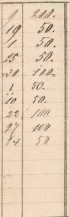 9 200.
19 50.
1 50.
25 50.
30 100.
1 50.
10 50.
22 100
27 100
24 50